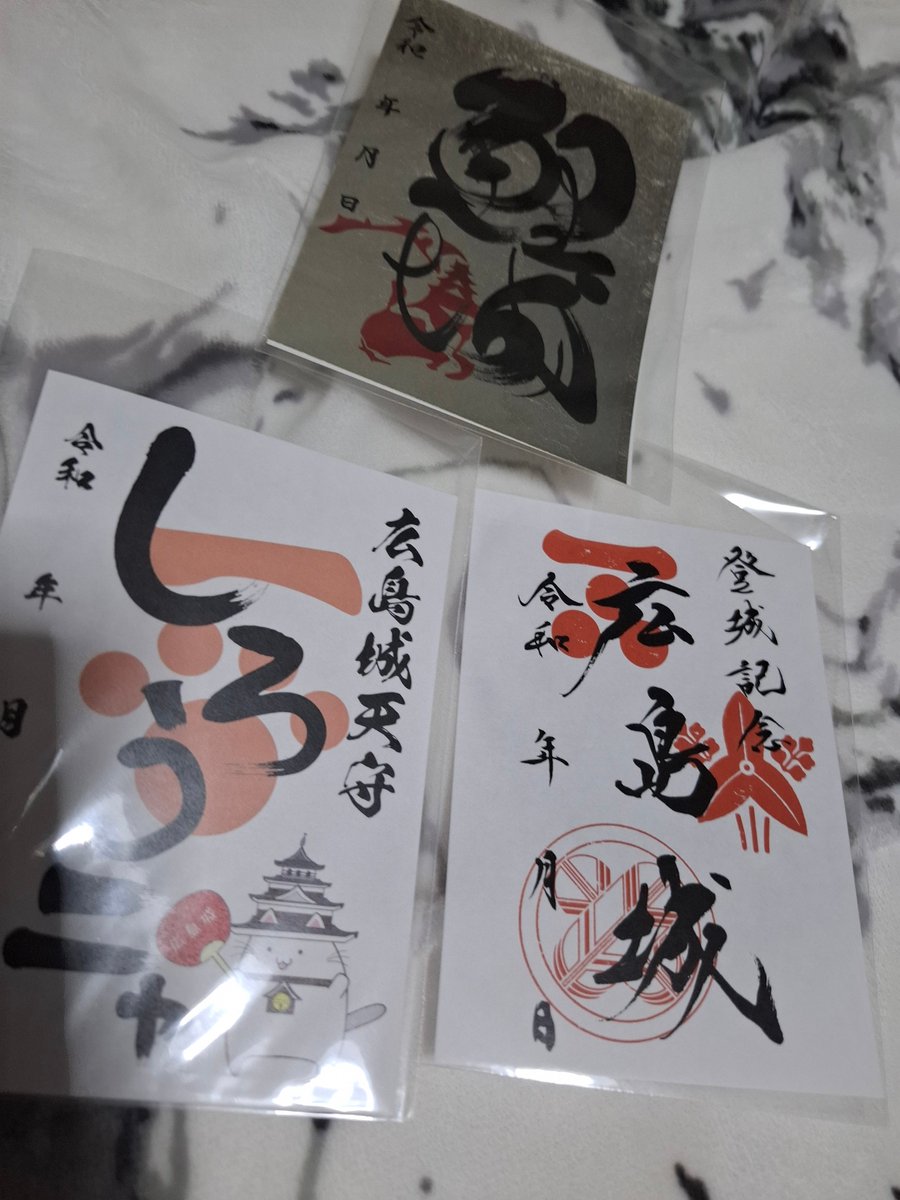 鯉城
令和 年 月 日
広島城天守
しろうニャ
令和 年 月
広島城
登城記念
広島城
令和 年 月 日